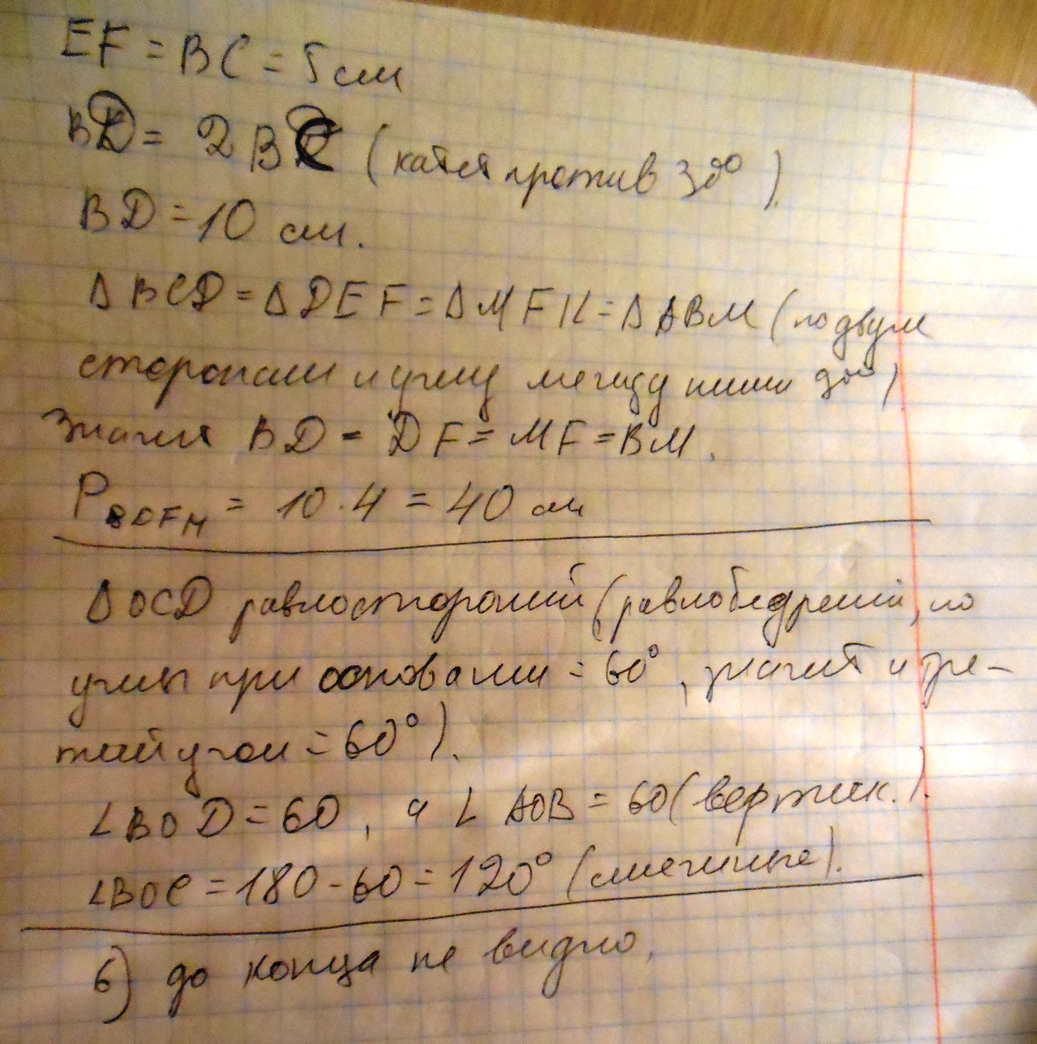 EF = BC = 5 см
BD = 2BC (катет против 30°).
BD = 10 см.
Δ BCD = Δ DEF = Δ MFK = Δ ABM (по двум
сторонам и углу между ними 90°)
Значит BD = DF = MF = BM.
P BDFM = 10 · 4 = 40 см
Δ OCD равносторонний (равнобедренный, но
углы при основании = 60°, значит и тре-
тий угол = 60°).
∠BOD = 60, а ∠ AOB = 60 (вертик.).
∠BOC = 180 - 60 = 120° (смежные).
6) до конца не видно.